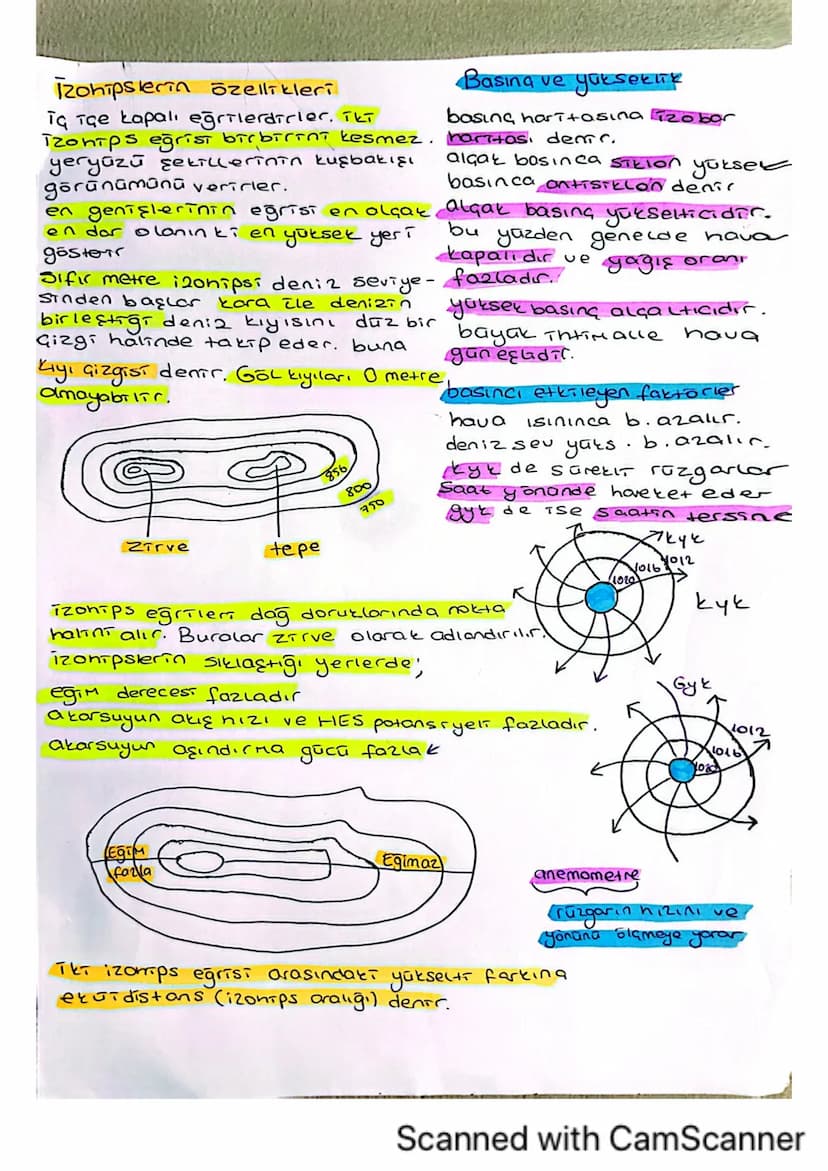 İzohipslerin özellikleri
iç içe kapalı eğrilerdirler. iki
izohips eğrisi birbirini kesmez.
yeryüzü şekillerinin kuşbakışı
görünümünü verirler.
en genişlerinin eğrisi en alçak
en dar olanın ki en yüksek yeri
gösterir
Sıfır metre izohipsi deniz seviye-
sinden başlar kara ile denizin
birleştiği deniz kıyısını düz bir
çizgi halinde takip eder. buna
kıyı çizgisi denir. Göl kıyıları 0 metre
olmayabilir.
856
800
750
zirve
tepe
izohips eğrileri dağ doruklarında nokta
halini alır. Buralar zirve olarak adlandırılır.
izohipslerin sıklaştığı yerlerde;
eğim derecesi fazladır
akarsuyun akış hızı ve HES potansiyeli fazladır.
akarsuyun aşındırma gücü fazla
Eğim
fazla
Eğimaz
iki izohips eğrisi arasındaki yükselti farkına
ekuidistans (izohips aralığı) denir.
Basınç ve yükseklik
basınç haritasına izobar
haritası denir.
alçak basınca siklon yüksek
basınca antisiklon denir
Alçak basınç yükselticidir.
bu yüzden genelde hava
kapalıdır ve yağış oranı
fazladır.
yüksek basınç alçaltıcıdır.
büyük ihtimalle hava
güneşlidir.
basıncı etkileyen faktörler
hava ısınınca b. azalır.
deniz sev yüks. b. azalır.
kyk de sürekli rüzgarlar
Saat yönünde hareket eder
gyk de ise saatin tersine
kyk
1012
1016
1020
kyk
Gyk
1012
1016
1020
anemometre
rüzgarın hızını ve
yönünü ölçmeye yarar
Scanned with CamScanner